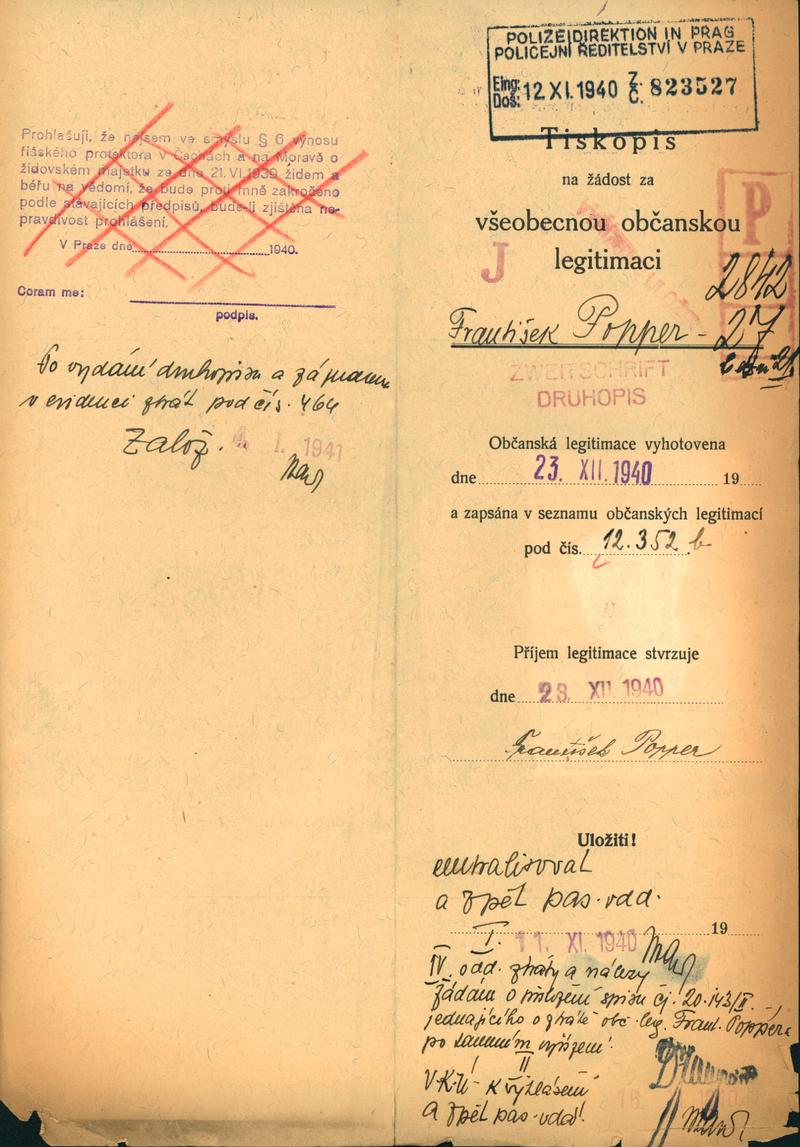 Prohlašuji, že nejsem ve smyslu § 6 výnosu
říšského protektora v Čechách a na Moravě o
židovském majetku ze dne 21. VI. 1939 židem a
béřu na vědomí, že bude proti mně zakročeno
podle stávajících předpisů, bude-li zjištěna ne-
pravdivost prohlášení.
V Praze dne 1940.
Coram me:
podpis.
Po vydání druhopisu a záznamu
v evidenci ztrát pod čís. 464
Založ.
I. 1941
POLIZEIDIREKTION IN PRAG
POLICEJNÍ ŘEDITELSTVÍ V PRAZE
Eing.
Doš: 12 XI. 1940 Z. Č. 823527
Tiskopis
na žádost za
všeobecnou občanskou
legitimaci
P
J
2842
František Popper - 27
ZWEITSCHRIFT
DRUHOPIS
Občanská legitimace vyhotovena
dne 23. XII. 1940 19
a zapsána v seznamu občanských legitimací
pod čís. 12.352 b
Příjem legitimace stvrzuje
dne 23. XII. 1940
František Popper
Uložiti!
centralisovat
a zpět pas. odd.
19
I. 11. XI. 1940
IV. odd. ztráty a nálezy
Žádám o přiložení spisu čj. 20.143/II
jednajícího o ztrátě obč. leg. Frant. Poppera
po tamním vyřízení.
II
k vyhlášení
a zpět pas. odd.